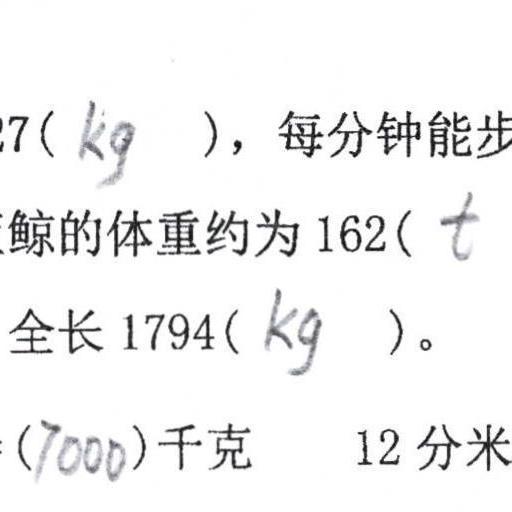 27( kg ),每分钟能步
鲸的体重约为 162( t
全长 1794( kg )。
(7000)千克 12 分米